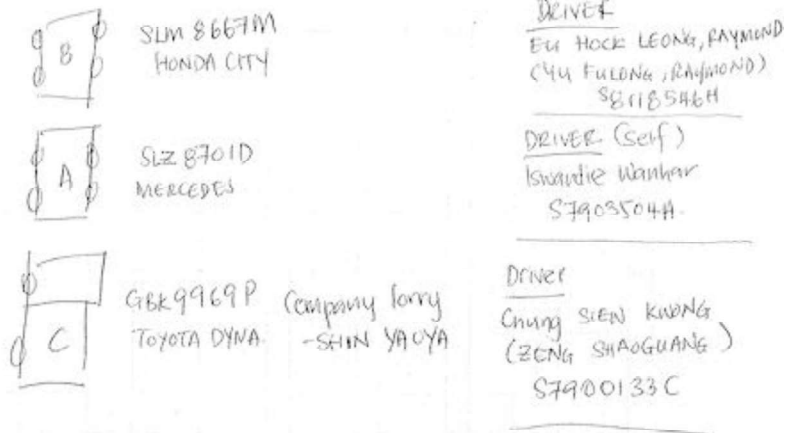 B
SLM 8667M
HONDA CITY
DRIVER
EU HOCK LEONG, RAYMOND
(YU FULONG, RAYMOND)
S8118546H
A
SLZ 8701D
MERCEDES
DRIVER (Self)
Iswandie Wanhar
S7903504A.
C
GBK9969P
TOYOTA DYNA.
Company lorry
-SHIN YAOYA
Driver
Chung SIEN KWONG
(ZENG SHAOGUANG)
S7900133C